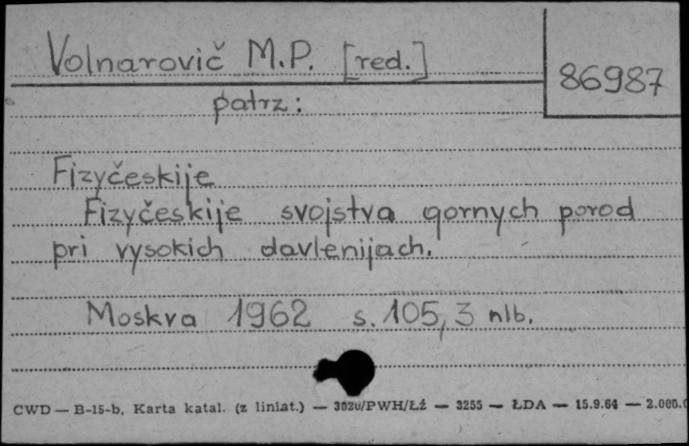 Volnarovič M.P. [red.]
86987
patrz:
Fizyčeskije
Fizyčeskije svojstva gornych porod
pri vysokich davlenijach.
Moskva 1962 s. 105, 3 nlb.
CWD — B-15-b, Karta katal. (z liniat.) — 3020/PWH/Łź — 3255 — ŁDA — 15.9.64 — 2.000.0